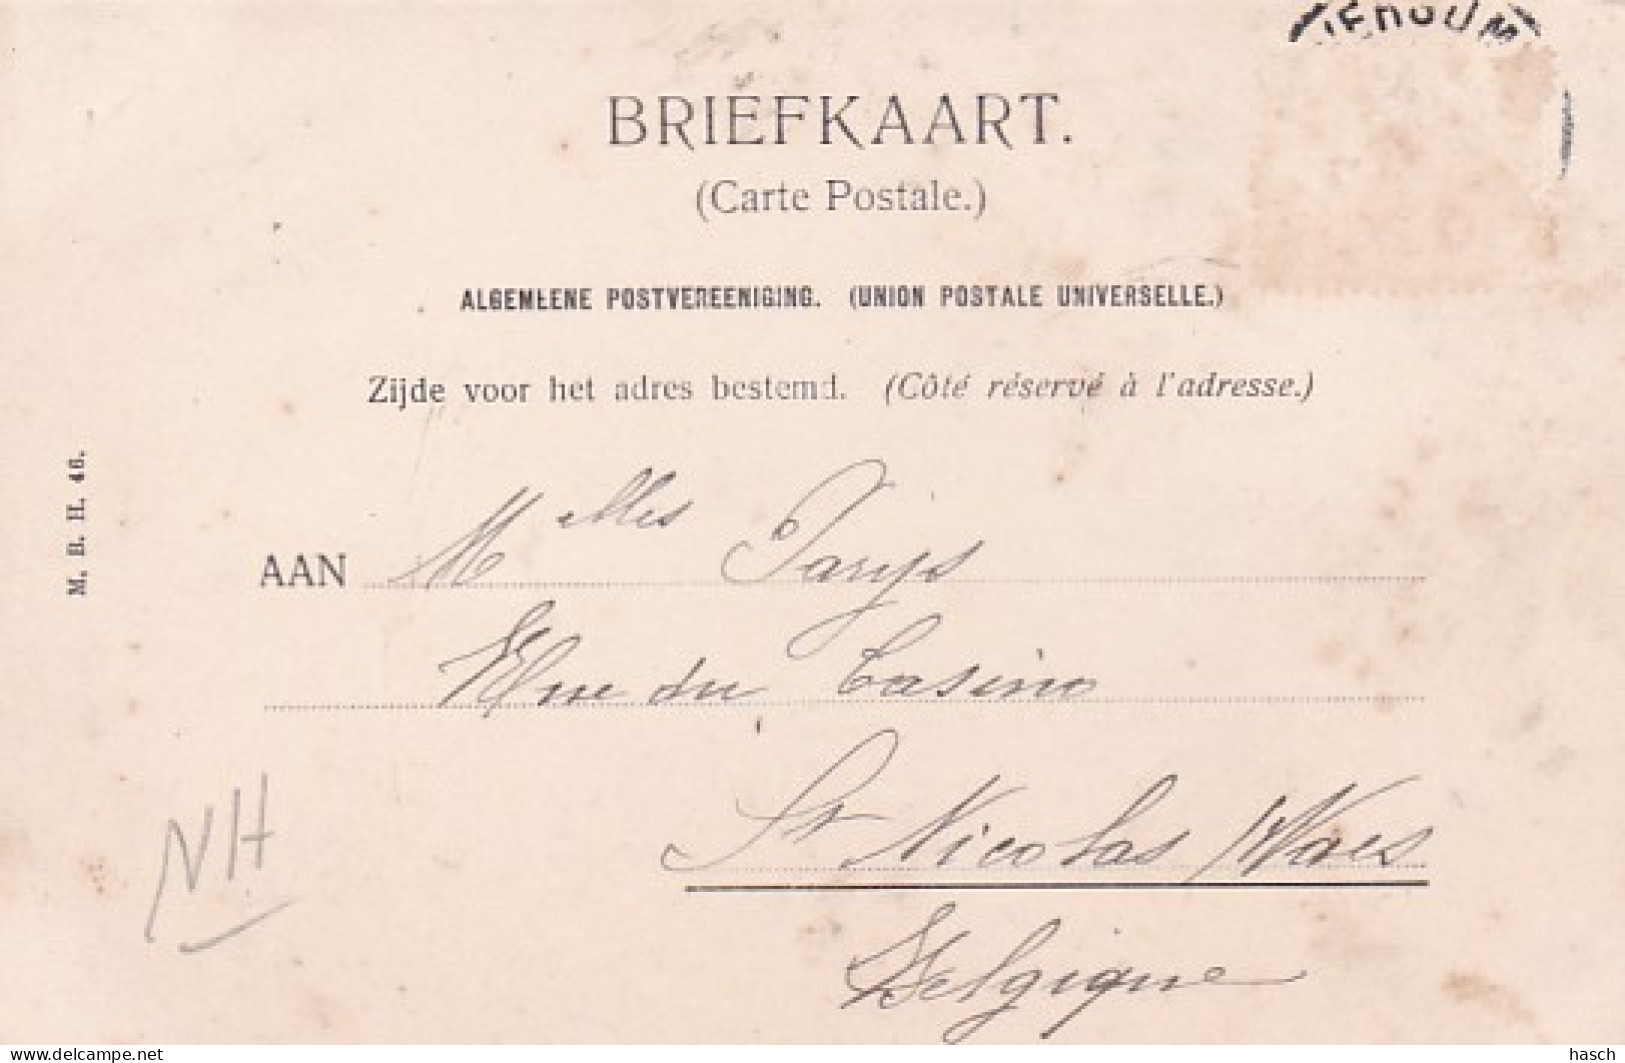 BRIEFKAART.
(Carte Postale.)
ALGEMEENE POSTVEREENIGING. (UNION POSTALE UNIVERSELLE.)
Zijde voor het adres bestemd. (Côté réservé à l'adresse.)
M. B. H. 46.
AAN Melles Parys
Rue du Casino
St Nicolas /Waes
Belgique
NH
https://www.delcampe.net
hasch